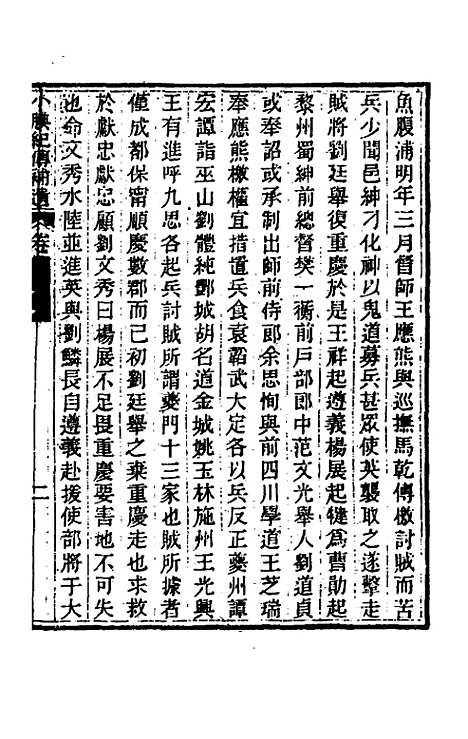 魚腹浦明年三月督師王應熊與巡撫馬乾傳檄討賊而苦
兵少聞邑紳刁化神以鬼道募兵甚眾使英襲取之遂擊走
賊將劉廷舉復重慶於是王祥起遵義楊展起犍為曹勛起
黎州蜀紳前總督樊一蘅前戶部郎中范文光舉人劉道貞
或奉應熊檄或奉制出師前侍郎余思恂與前四川學道王芝瑞
奉應熊檄權宜措置兵食袁韜武大定各以兵反正夔州譚
宏譚詣巫山劉體純酆城胡名道金城姚玉林施州王光興
王有進呼九思各起兵討賊所謂夔門十三家也賊所據者
僅成都保甯順慶數郡而已初劉廷舉之棄重慶走也求救
於獻忠獻忠顧劉文秀曰楊展不足畏重慶要害地不可失
也命文秀水陸並進英與劉鱗長自遵義赴援使部將于大
小腆紀傳補遺 卷
二